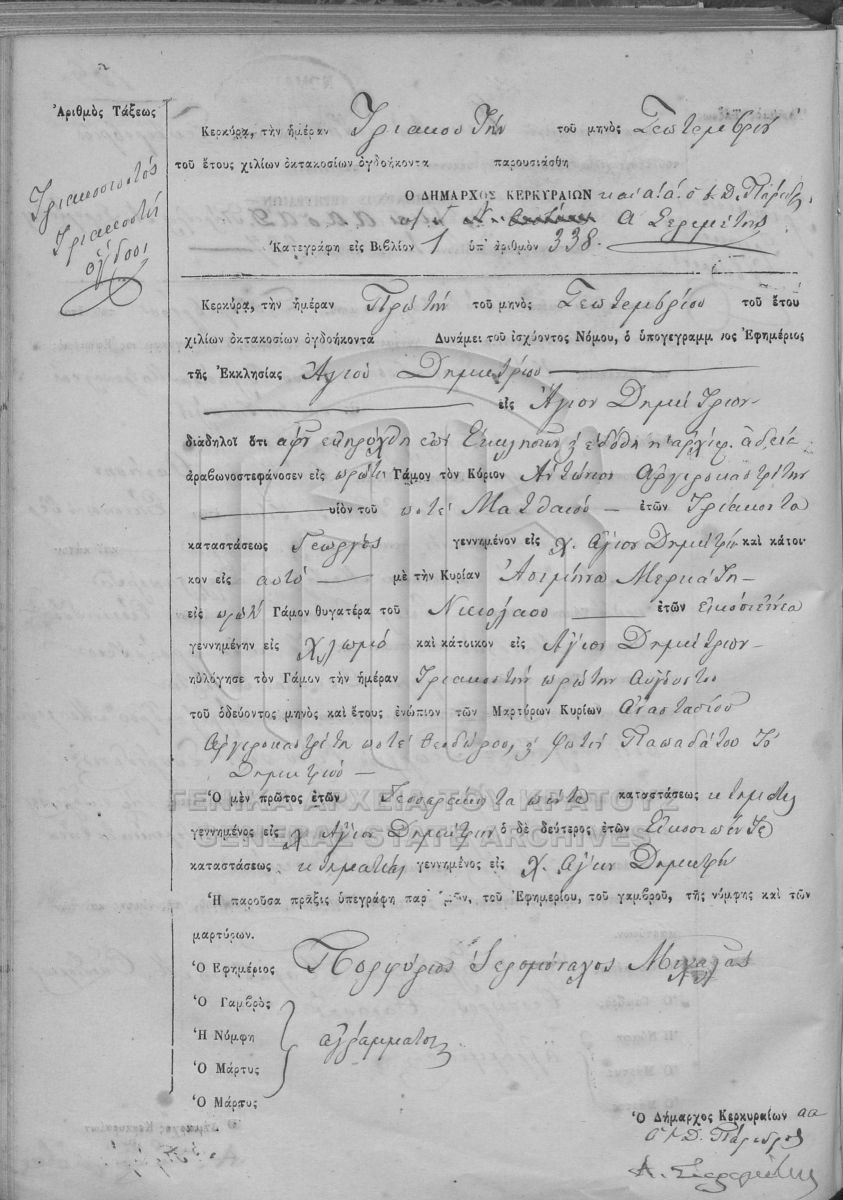 Ἀριθμὸς Τάξεως
Τριακοσιοστός
Τριακοστή
ὄγδοος
Κερκύρᾳ, τὴν ἡμέραν Τριακοστὴν τοῦ μηνὸς Σεπτεμβρίου
τοῦ ἔτους χιλίων ὀκτακοσίων ὀγδοήκοντα παρουσιάσθη
Ο ΔΗΜΑΡΧΟΣ ΚΕΡΚΥΡΑΙΩΝ
Α Σερεμέτης
Κατεγράφη εἰς Βιβλίον 1 ὑπ' ἀριθμὸν 338.
Κερκύρᾳ, τὴν ἡμέραν Πρώτην τοῦ μηνὸς Σεπτεμβρίου τοῦ ἔτου
χιλίων ὀκτακοσίων ὀγδοήκοντα Δυνάμει τοῦ ἰσχύοντος Νόμου, ὁ ὑπογεγραμμ νος Ἐφημέριος
τῆς Ἐκκλησίας Ἁγίου Δημητρίου
εἰς Ἅγιον Δημήτριον
διαδηλοῖ ὅτι ἀφ' ἐκηρύχθη ἐπ' Ἐκκλησίαις ἐδόθη ἡ ἀρχιερ. ἄδεια
ἀραβωνοστεφάνοσεν εἰς πρῶτον Γάμον τὸν Κύριον Ἀντώνιον Αργυροκαστρίτην
υἱὸν τοῦ ποτὲ Ματθαίου ἐτῶν Τριάκοντα
καταστάσεως Γεωργὸς γεννημένον εἰς χ. Ἅγιον Δημήτρι καὶ κάτοι-
κον εἰς αυτό μὲ τὴν Κυρίαν Ασιμήνα Μερκάτη
εἰς πρῶτον Γάμον θυγατέρα τοῦ Νικολάου ἐτῶν εἰκοσιεννέα
γεννημένην εἰς Χλωμό καὶ κάτοικον εἰς Ἅγιον Δημήτριον
ηὐλόγησε τὸν Γάμον τὴν ἡμέραν Τριακοστὴν πρώτην Αὐγούστου
τοῦ ὁδεύοντος μηνὸς καὶ ἔτους ἐνώπιον τῶν Μαρτύρων Κυρίων Αναστασίου
Αργυροκαστρίτη ποτὲ Θεοδώρου, Φωτίου Παπαδάτου τοῦ
Δημητρίου
Ὁ μὲν πρῶτος ἐτῶν Τεσσαράκοντα πέντε καταστάσεως κτηματίας
γεννημένος εἰς χ Ἅγιον Δημήτριον ὁ δὲ δεύτερος ἐτῶν Εἰκοσιπέντε
καταστάσεως κτηματίας γεννημένος εἰς χ. Ἅγιον Δημήτρη
Ἡ παροῦσα πρᾶξις ὑπεγράφη παρ' ἡμῶν, τοῦ Ἐφημερίου, τοῦ γαμβροῦ, τῆς νύμφης καὶ τῶν
μαρτύρων.
Ὁ Ἐφημέριος Πορφύριος Ἱερομόναχος
Ὁ Γαμβρὸς
Ἡ Νύμφη ἀγράμματοι
Ὁ Μάρτυς
Ὁ Μάρτυς
Ὁ Δήμαρχος Κερκυραίων αα
Δ. Πάρεδρος
Α. Σερεμέτης
ΓΕΝΙΚΑ ΑΡΧΕΙΑ ΤΟΥ ΚΡΑΤΟΥΣ
GENERAL STATE ARCHIVES